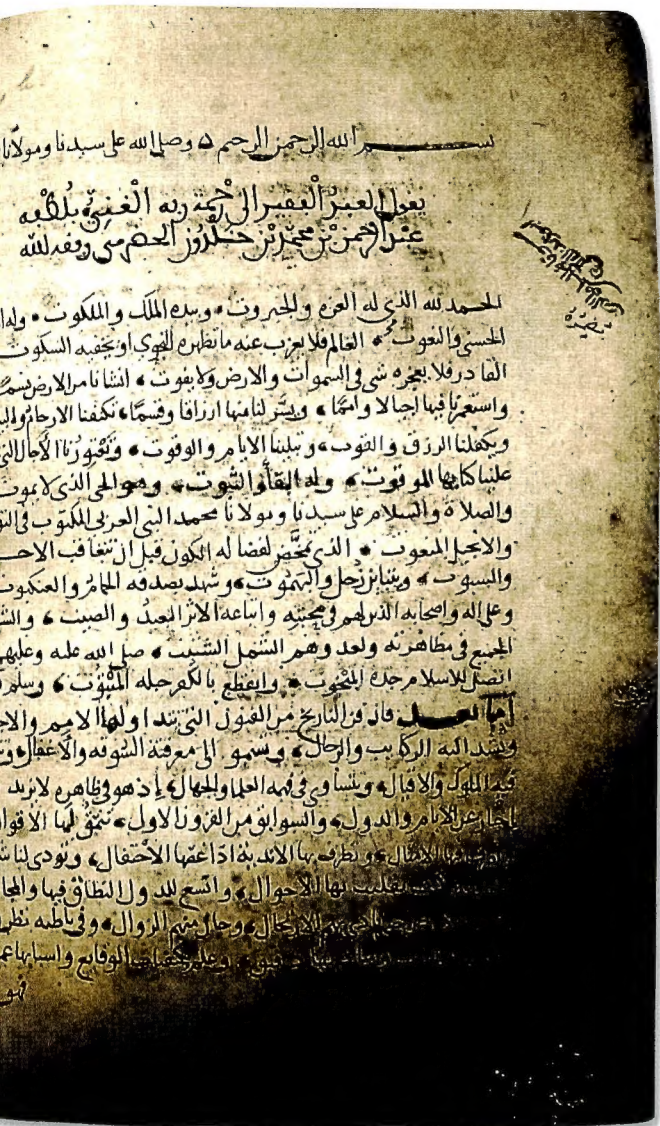 بسم الله الرحمن الرحيم ه وصلى الله على سيدنا ومولانا
يقول العبد الفقير الى رحمة ربه الغني بلطفه
عبد الرحمن بن محمد بن خلدون الحضرمي وفقه لله
الحمد لله الذي له العزه والجبروت وبيده الملك والملكوت وله ا
الحسنى والنعوت العالم فلا يعزب عنه ما تظهره النجوى او يخفيه السكوت
القادر فلا يعجزه شي في السموات والارض ولا يفوت انشانا من الارض نسمًا
واستعمرنا فيها اجيالا وامما ويسر لنا منها ارزاقا وقسما تكنفنا الارحام والبيـ
ويكفلنا الرزق والقوت وتبلينا الايام والوقوت وتعتورنا الآجال التي
علينا كتابها الموقوت وله البقا والثبوت وهو الحي الذي لا يموت
والصلاة والسلام على سيدنا ومولانا محمد النبي العربي المكتوب في التو
والانجيل المنعوت الذي تمخض لفصاله الكون قبل ان تتعاقب الاحـ
والسبوت ويتباين زحل والبهموت وشهد بصدقه الحمام والعنكبوت
وعلى اله واصحابه الذين لهم في محبته واتباعه الاثر البعيد والصيت والشـ
الجميع في مظاهرته ولعدوهم الشمل الشتيت صلى الله عليه وعليهم
اتصل للاسلام جده المبخوت وانقطع بالكفر حبله المبتوت وسلم
اما بعد فان فن التاريخ من الفنون التي تتداولها الامم والاجـ
وتشد اليه الركايب والرحال وتسمو الى معرفته السوقه والاغفال وتـ
فيه الملوك والاقيال ويتساوى في فهمه العلما والجهال إذ هو في ظاهره لا يزيد
اخبار عن الايام والدول والسوابق من القرون الاول تنمق لها الاقوا
فيها الامثال وتطرف بها الاندية اذا غصها الاحتفال وتودي لنا شـ
تقلبت بها الاحوال واتسع للدول النطاق فيها والمجا
بهم الارتحال وحان منهم الزوال وفي باطنه نظر
وعلم بكيفيات الوقايع واسبابها عمـ
فهو